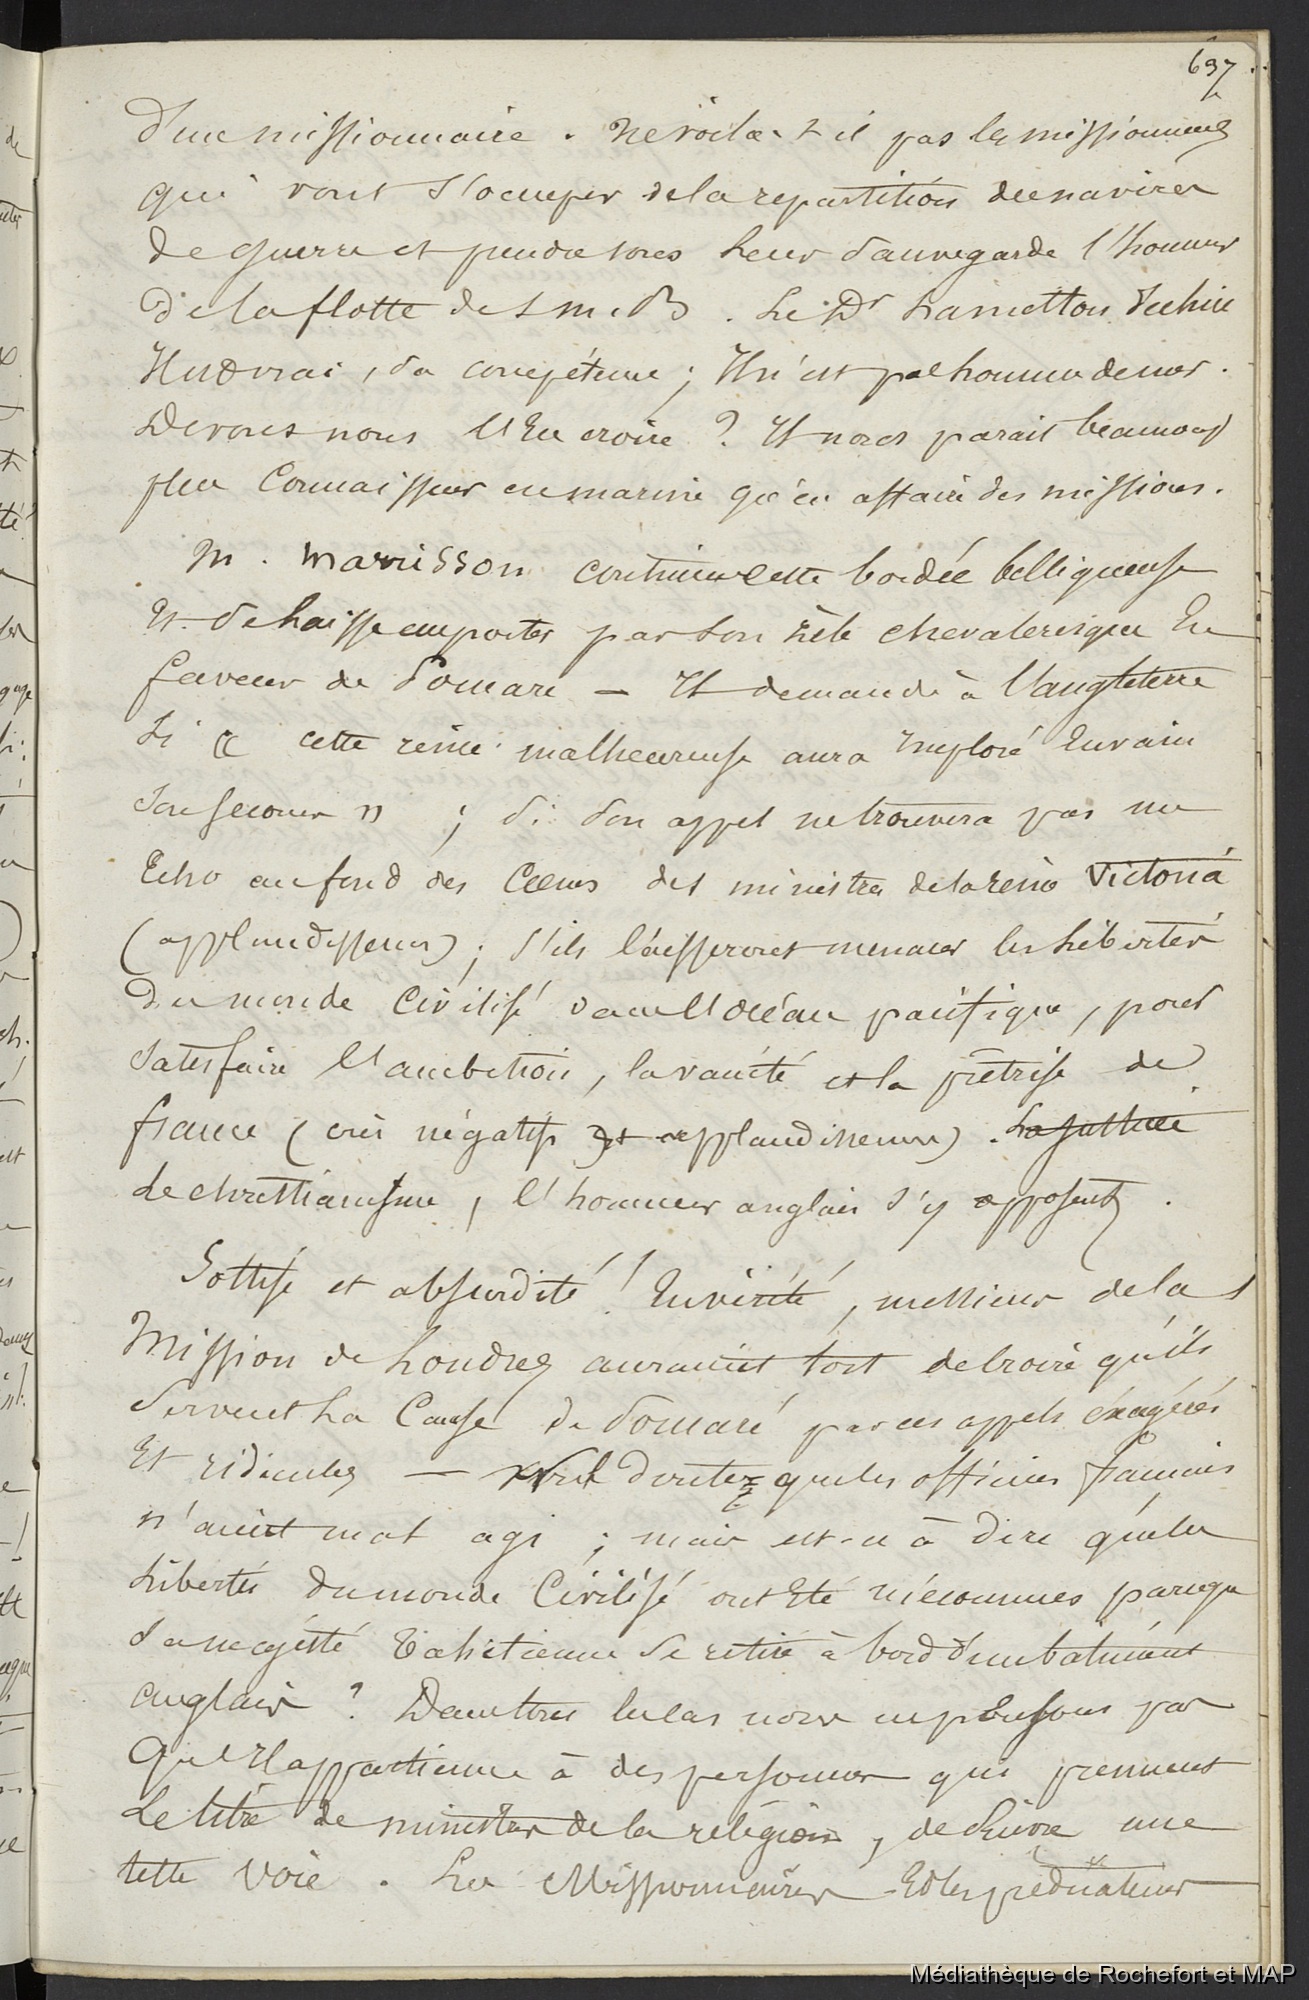 697
d'un missionnaire. Ne voila-t-il pas les missionnaires
qui vont s'occuper de la repartition des navires
de guerre et prendre sous leur sauvegarde l'honneur
de la flotte de S. M. B. Le Dr hamelton decline
Il est vrai, sa compétence ; Il n'est pas homme de mer.
Devons nous l'En croire ? Il nous parait beaucoup
plus Connaisseur en marine qu'en affaire des missions.
M. Marrisson continue cette bordée belliqueuse
Et se laisse emporter par son zèle chevaleresque En
faveur de Pomare — Il demande à l'angleterre
Si « cette reine malheureuse aura Imploré Envain
Son secours » ; si son appel ne trouvera pas un
Echo au fond des Cœurs des ministres de la reine Victoria
(applaudissemens) ; s'ils laisseront menacer les libertés
du monde Civilisé dans l'Océan pacifique, pour
satisfaire l'ambition, la vanité et la prêtrise de
france (cris négatifs et applaudissemens).
Le christianisme, l'honneur anglais s'y opposent.
Sottise et absurdité ! En vérité, messieurs de la
Mission de Londres auraient tort de croire qu'ils
Servent La Cause de Pomaré par ces appels éxagérés
Et ridicules — doutez que les officiers francais
n'aient mal agi ; mais est-ce à dire que les
libertés du monde Civilisé ont Eté méconnues parce que
sa majésté Tahitienne se retire à bord d'un batiment
anglais ? Dans tous les cas nous ne pensons pas
Qu'Il appartienne à des personnes qui prennent
Le titre de ministres de la religion, de suivre une
telle voie. Les Missionnaires Et les prédicateurs
Médiathèque de Rochefort et MAP